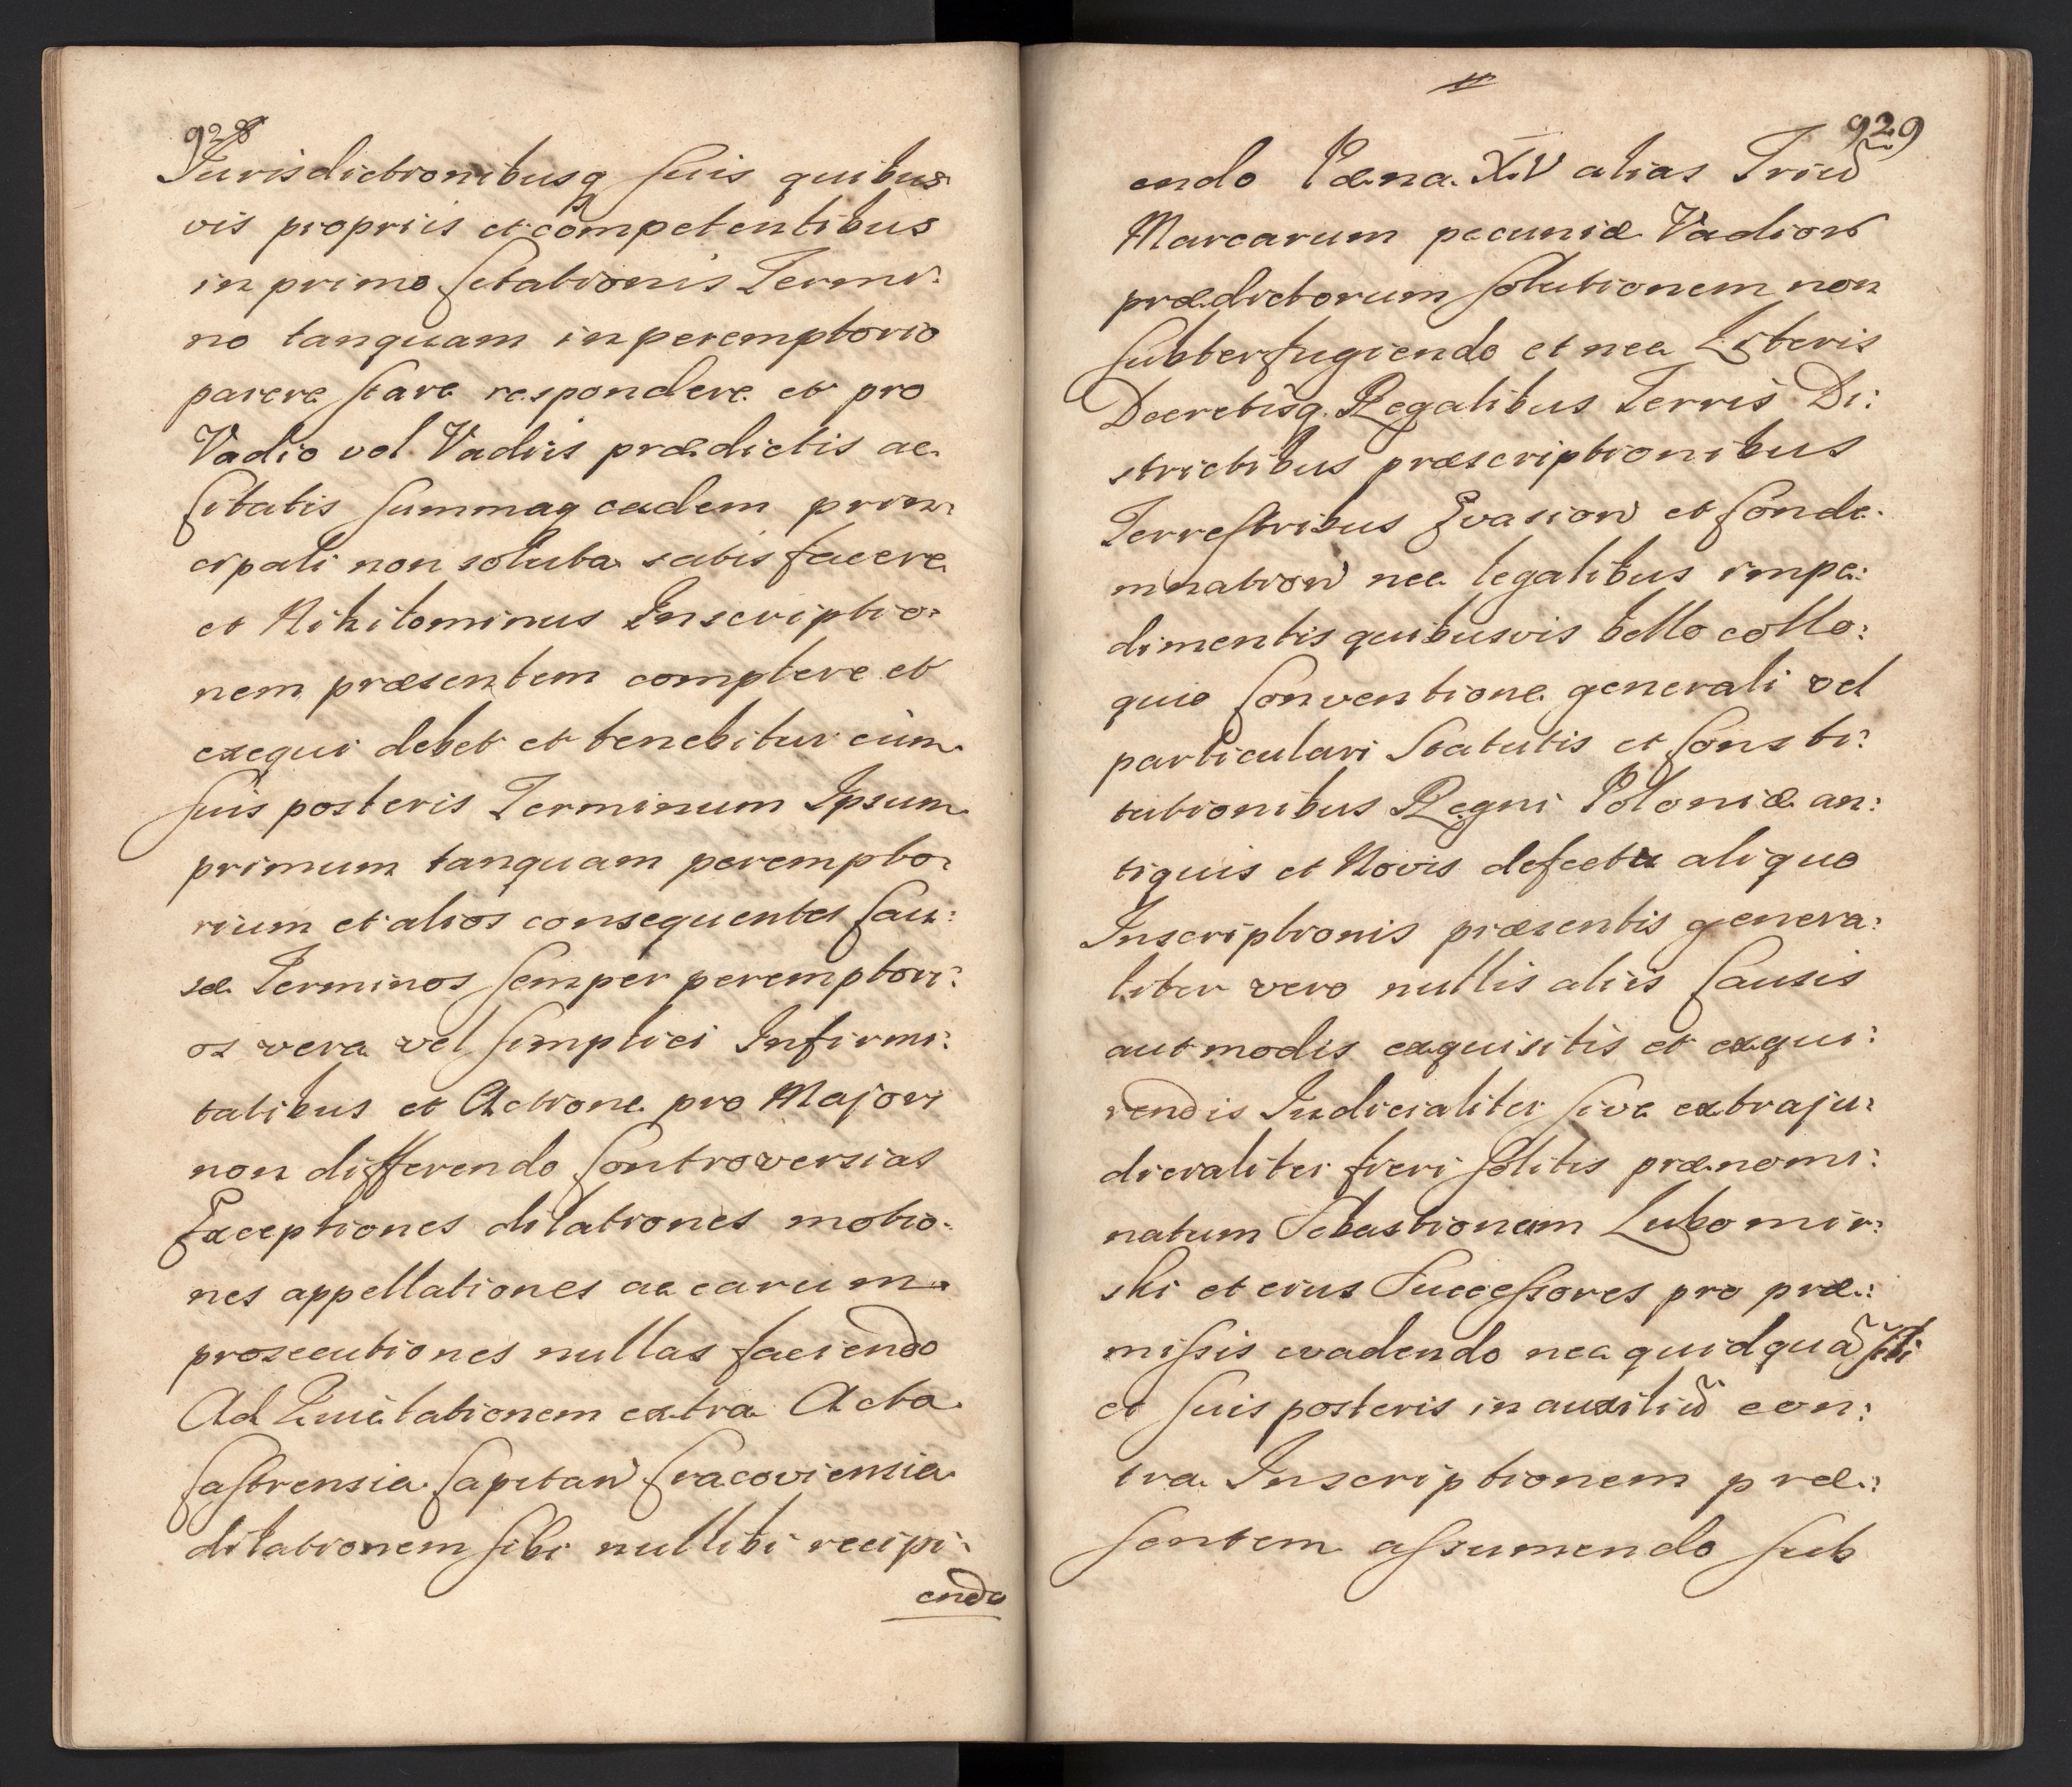 928
Jurisdictionibusq suis quibus
vis propriis et competentibus
in primo Citationis Termi:
no tanquam in peremptorio
parere stare respondere et pro
Vadio vel Vadiis prædictis ac
Citatis summaq eadem prin:
cipali non soluta satisfacere
et Nihilominus Inscriptio:
nem præsentem complere et
exequi debet et tenebitur cum
suis posteris Terminum Ipsum
primum tanquam perempto:
rium et alios consequentes Cau:
sæ Terminos semper peremptori:
os vera vel simplici Infirmi:
tatibus et Actione pro Majori
non differendo Controversias
Exceptiones dilationes motio:
nes appellationes ac earum
prosecutiones nullas faciendo
Ad Quietationem extra Acta
Castrensia Capitan Cracoviensia
dilationem sibi nullibi recipi:
endo
929
endo Pæna XIV alias Triũ
Marcarum pecuniæ Vadior
prædictorum solutionem non
subterfugiendo et nec Literis
Decretisq. Regalibus Terris Di:
strictibus præscriptionibus
Terrestribus Evasion et Conde:
mnation nec legalibus impe:
dimentis quibusvis bello collo:
quio Conventione generali vel
particulari Statutis et Consti:
tutionibus Regni Poloniæ an:
tiquis et Novis defectu aliquo
Inscriptionis præsentis genera:
liter vero nullis aliis Causis
aut modis exquisitis et exqui:
rendis Judicialiter sive extraju:
dicialiter fieri solitis prænomi:
natum Sebastionem Lubomir:
ski et eius Successores pro præ:
missis evadendo nec quidquã sibi
et suis posteris in auxiliũ con:
tra Inscriptionem præ:
sentem assumendo sub